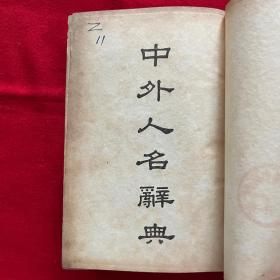 Z
11
中外人名辭典